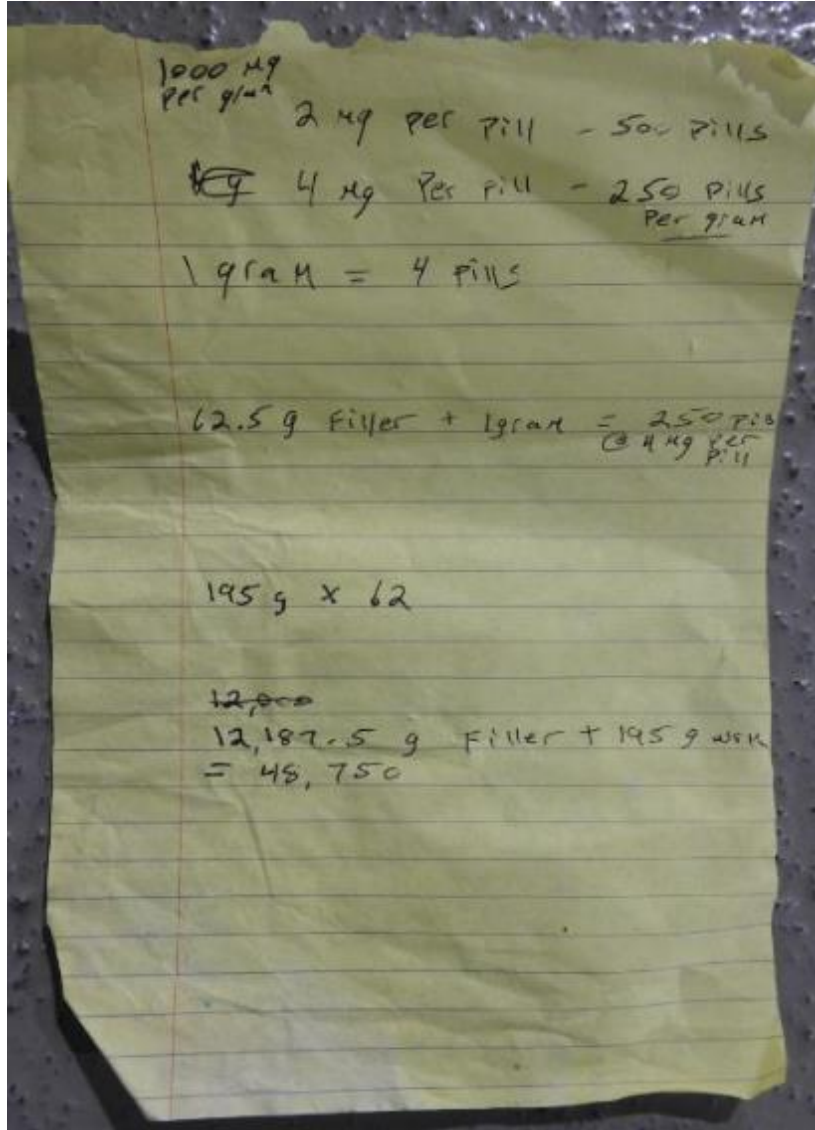 1000 Mg
per gram
2 Mg per Pill - 500 Pills
4 Mg Per Pill - 250 Pills
Per gram
1 gram = 4 Pills
62.5 g Filler + 1gram = 250 Pills
@ 4 Mg per
Pill
195 g x 62
12,000
12,187.5 g Filler + 195 g
= 48,750